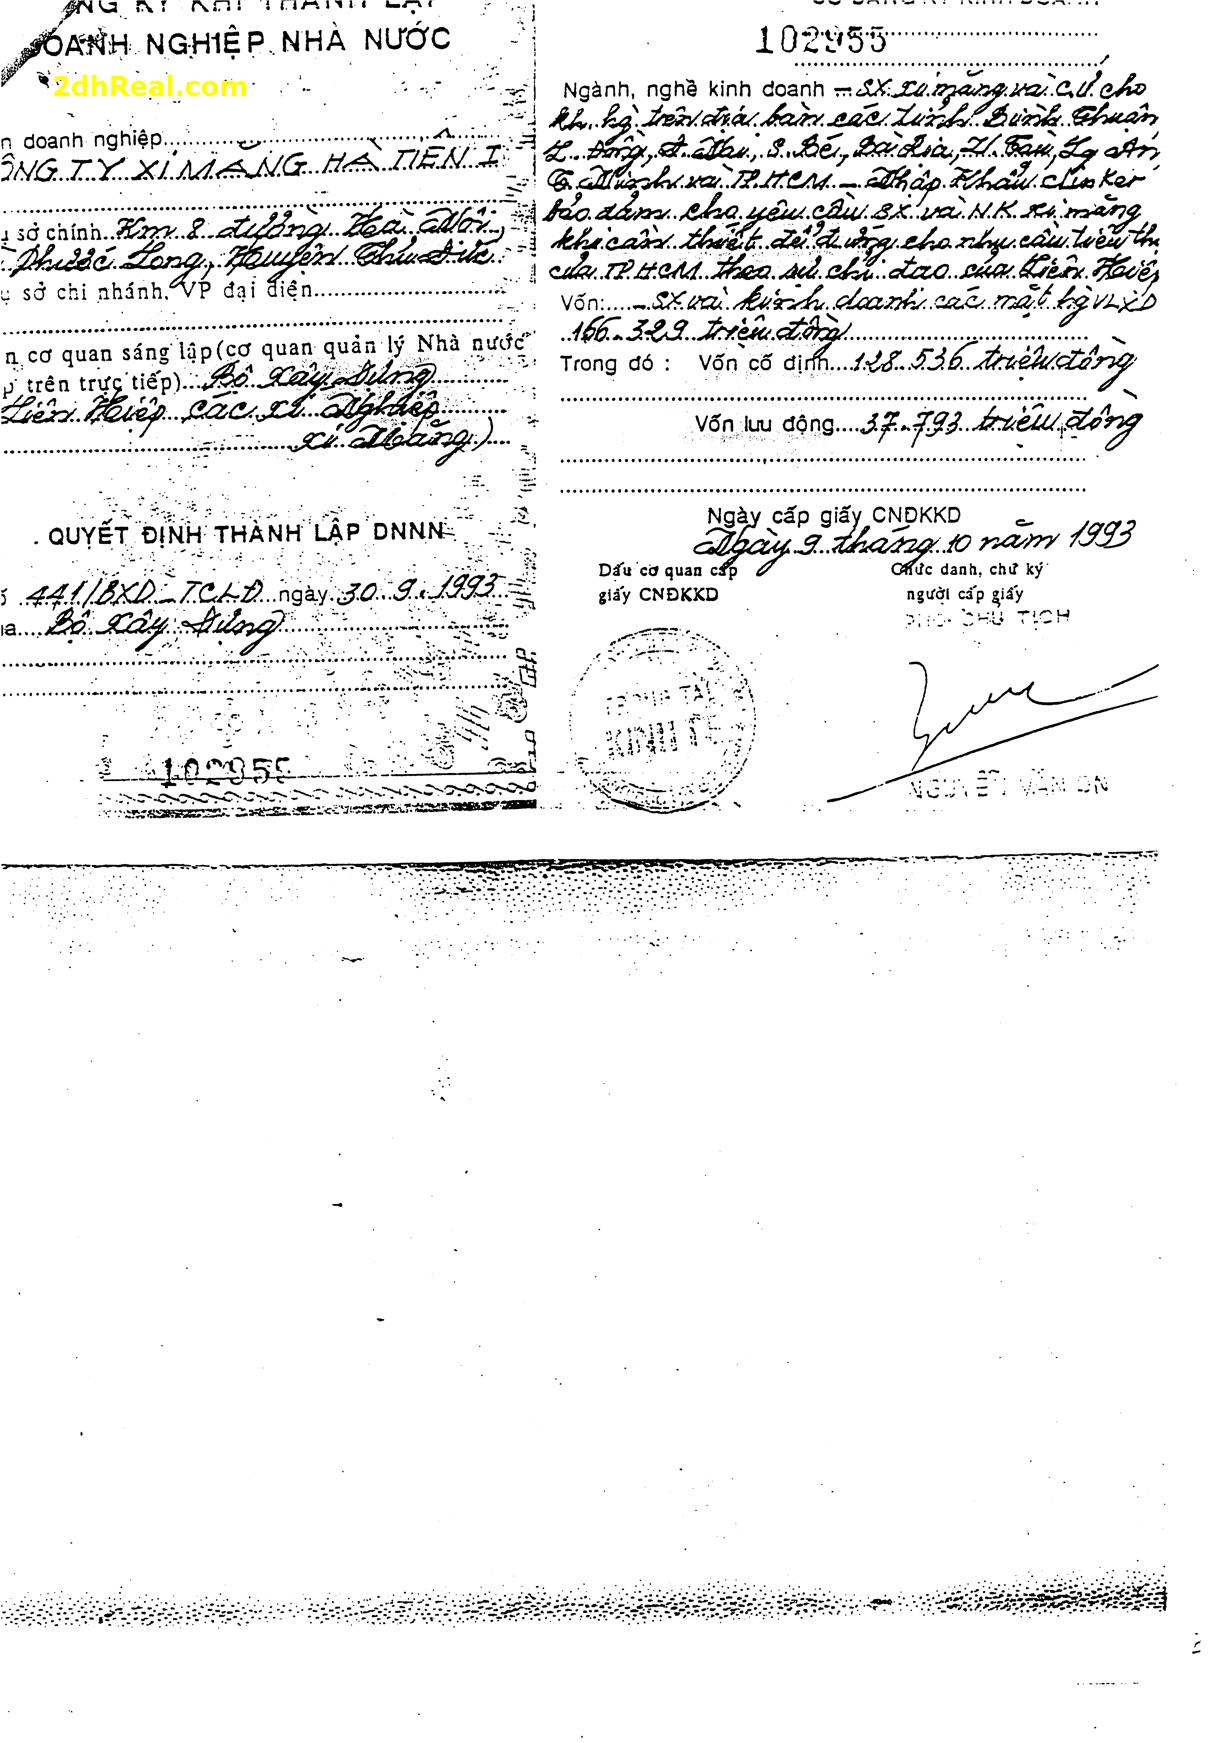 DOANH NGHIỆP NHÀ NƯỚC
2dhReal.com
n doanh nghiệp
ÔNG TY XI MĂNG HÀ TIÊN I
sở chính Km 8 đường Hà Nội,
Phước Long, Huyện Thủ Đức
sở chi nhánh, VP đại diện
n cơ quan sáng lập (cơ quan quản lý Nhà nước
p trên trực tiếp) Bộ Xây Dựng
Liên Hiệp các xí Nghiệp
xi Măng)
QUYẾT ĐỊNH THÀNH LẬP DNNN
ố 441/BXD - TCLĐ ngày 30.9.1993
ủa Bộ Xây Dựng
102955
102955
Ngành, nghề kinh doanh - SX xi măng và C.Ư cho
kh. hg trên địa bàn các tỉnh Bình Thuận
L. Đồng, S. Bé, Bà Rịa, Tàu, Lg An
T. Ninh và TP. HCM - Nhập Khẩu clinker
bảo đảm cho yêu cầu SX và N.K xi măng
khi cần thiết để đ. ứng cho nhu cầu tiêu th
của TP HCM theo sự chỉ đạo của Liên Hiệp
Vốn: - SX và kinh doanh các mặt hg VLXD
166.329 triệu đồng
Trong đó : Vốn cố định 128.536 triệu đồng
Vốn lưu động 37.793 triệu đồng
Ngày cấp giấy CNĐKKD
Ngày 9 tháng 10 năm 1993
Dấu cơ quan cấp
giấy CNĐKKD
Chức danh, chữ ký
người cấp giấy
PHÓ CHỦ TỊCH
TRỌNG TÀI
KINH TẾ
VĂN